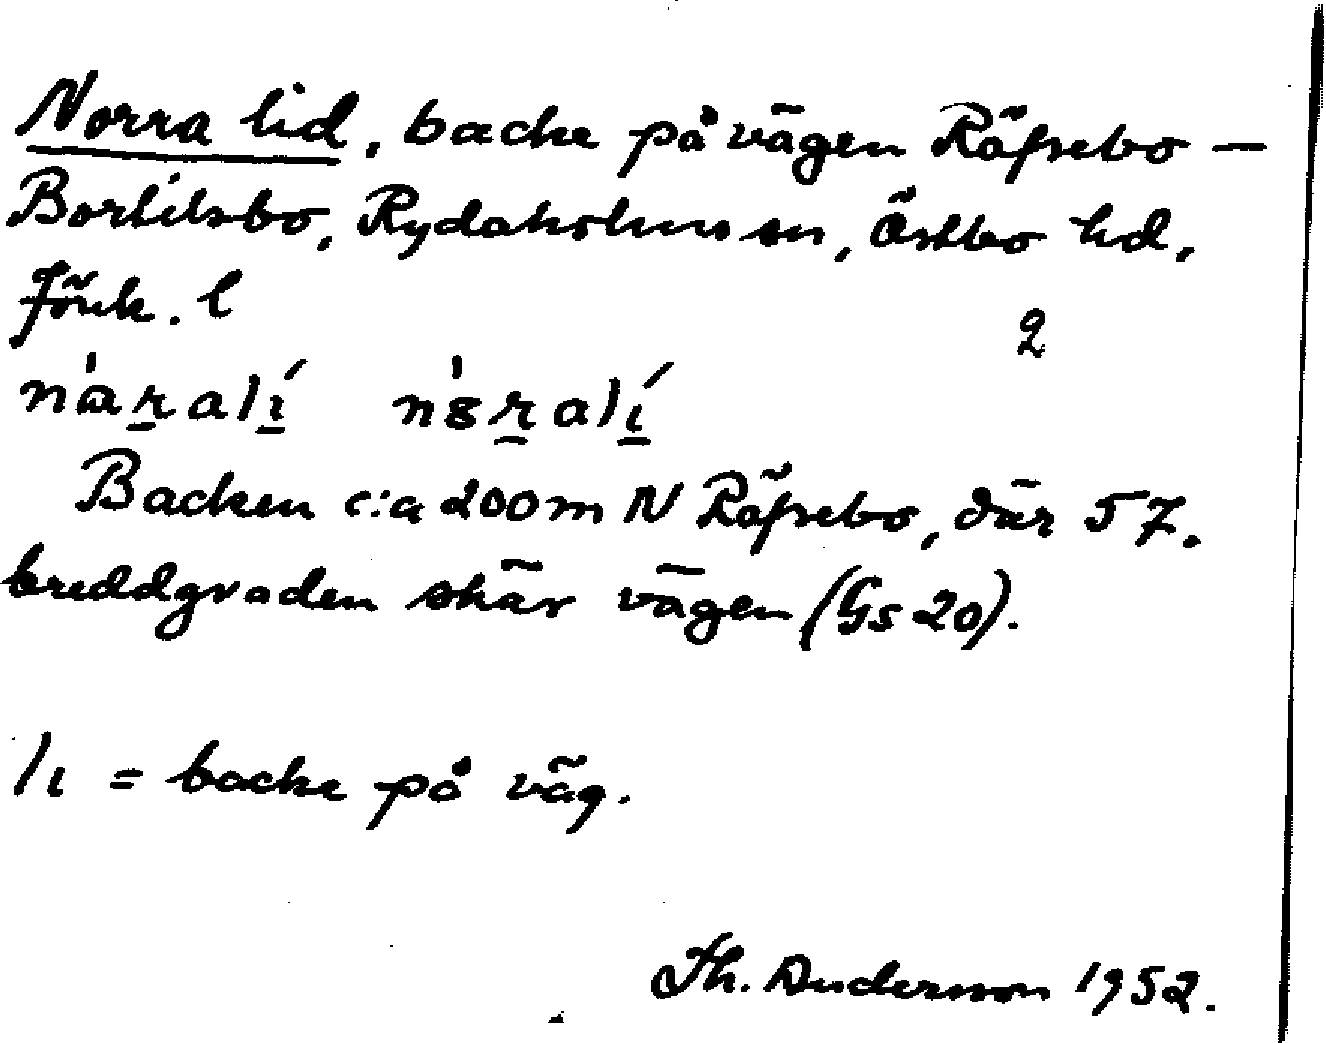 Norra lid, backe på vägen Räfsebo –
Bortitsbo, Rydaholms sn, Östbo hd,
Jönk. l
2
Backen c:a 200 m N Räfsebo, där 57.
breddgraden skär vägen (Gs 20).
lı = backe på väg.
Th. Andersson 1952.